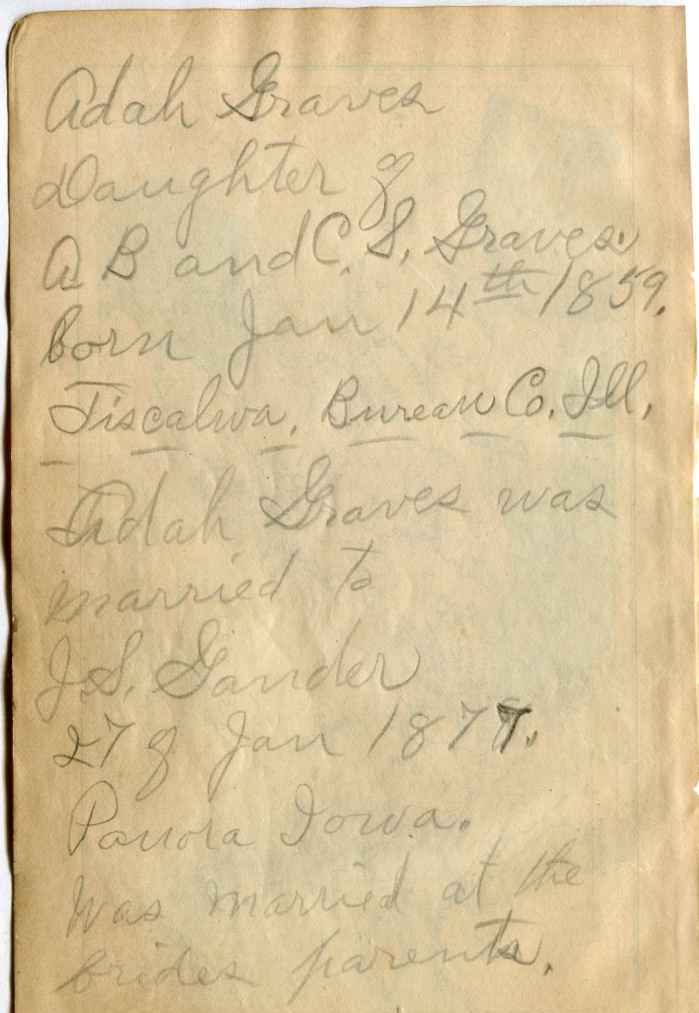 Adah Graves
Daughter of
A B and C. S. Graves.
born Jan 14th 1859.
Tiscalwa, Bureau Co. Ill.
Adah Graves was
married to
J. S. Gander
27 of Jan 1877.
Panora Iowa.
Was married at the
brides parents.